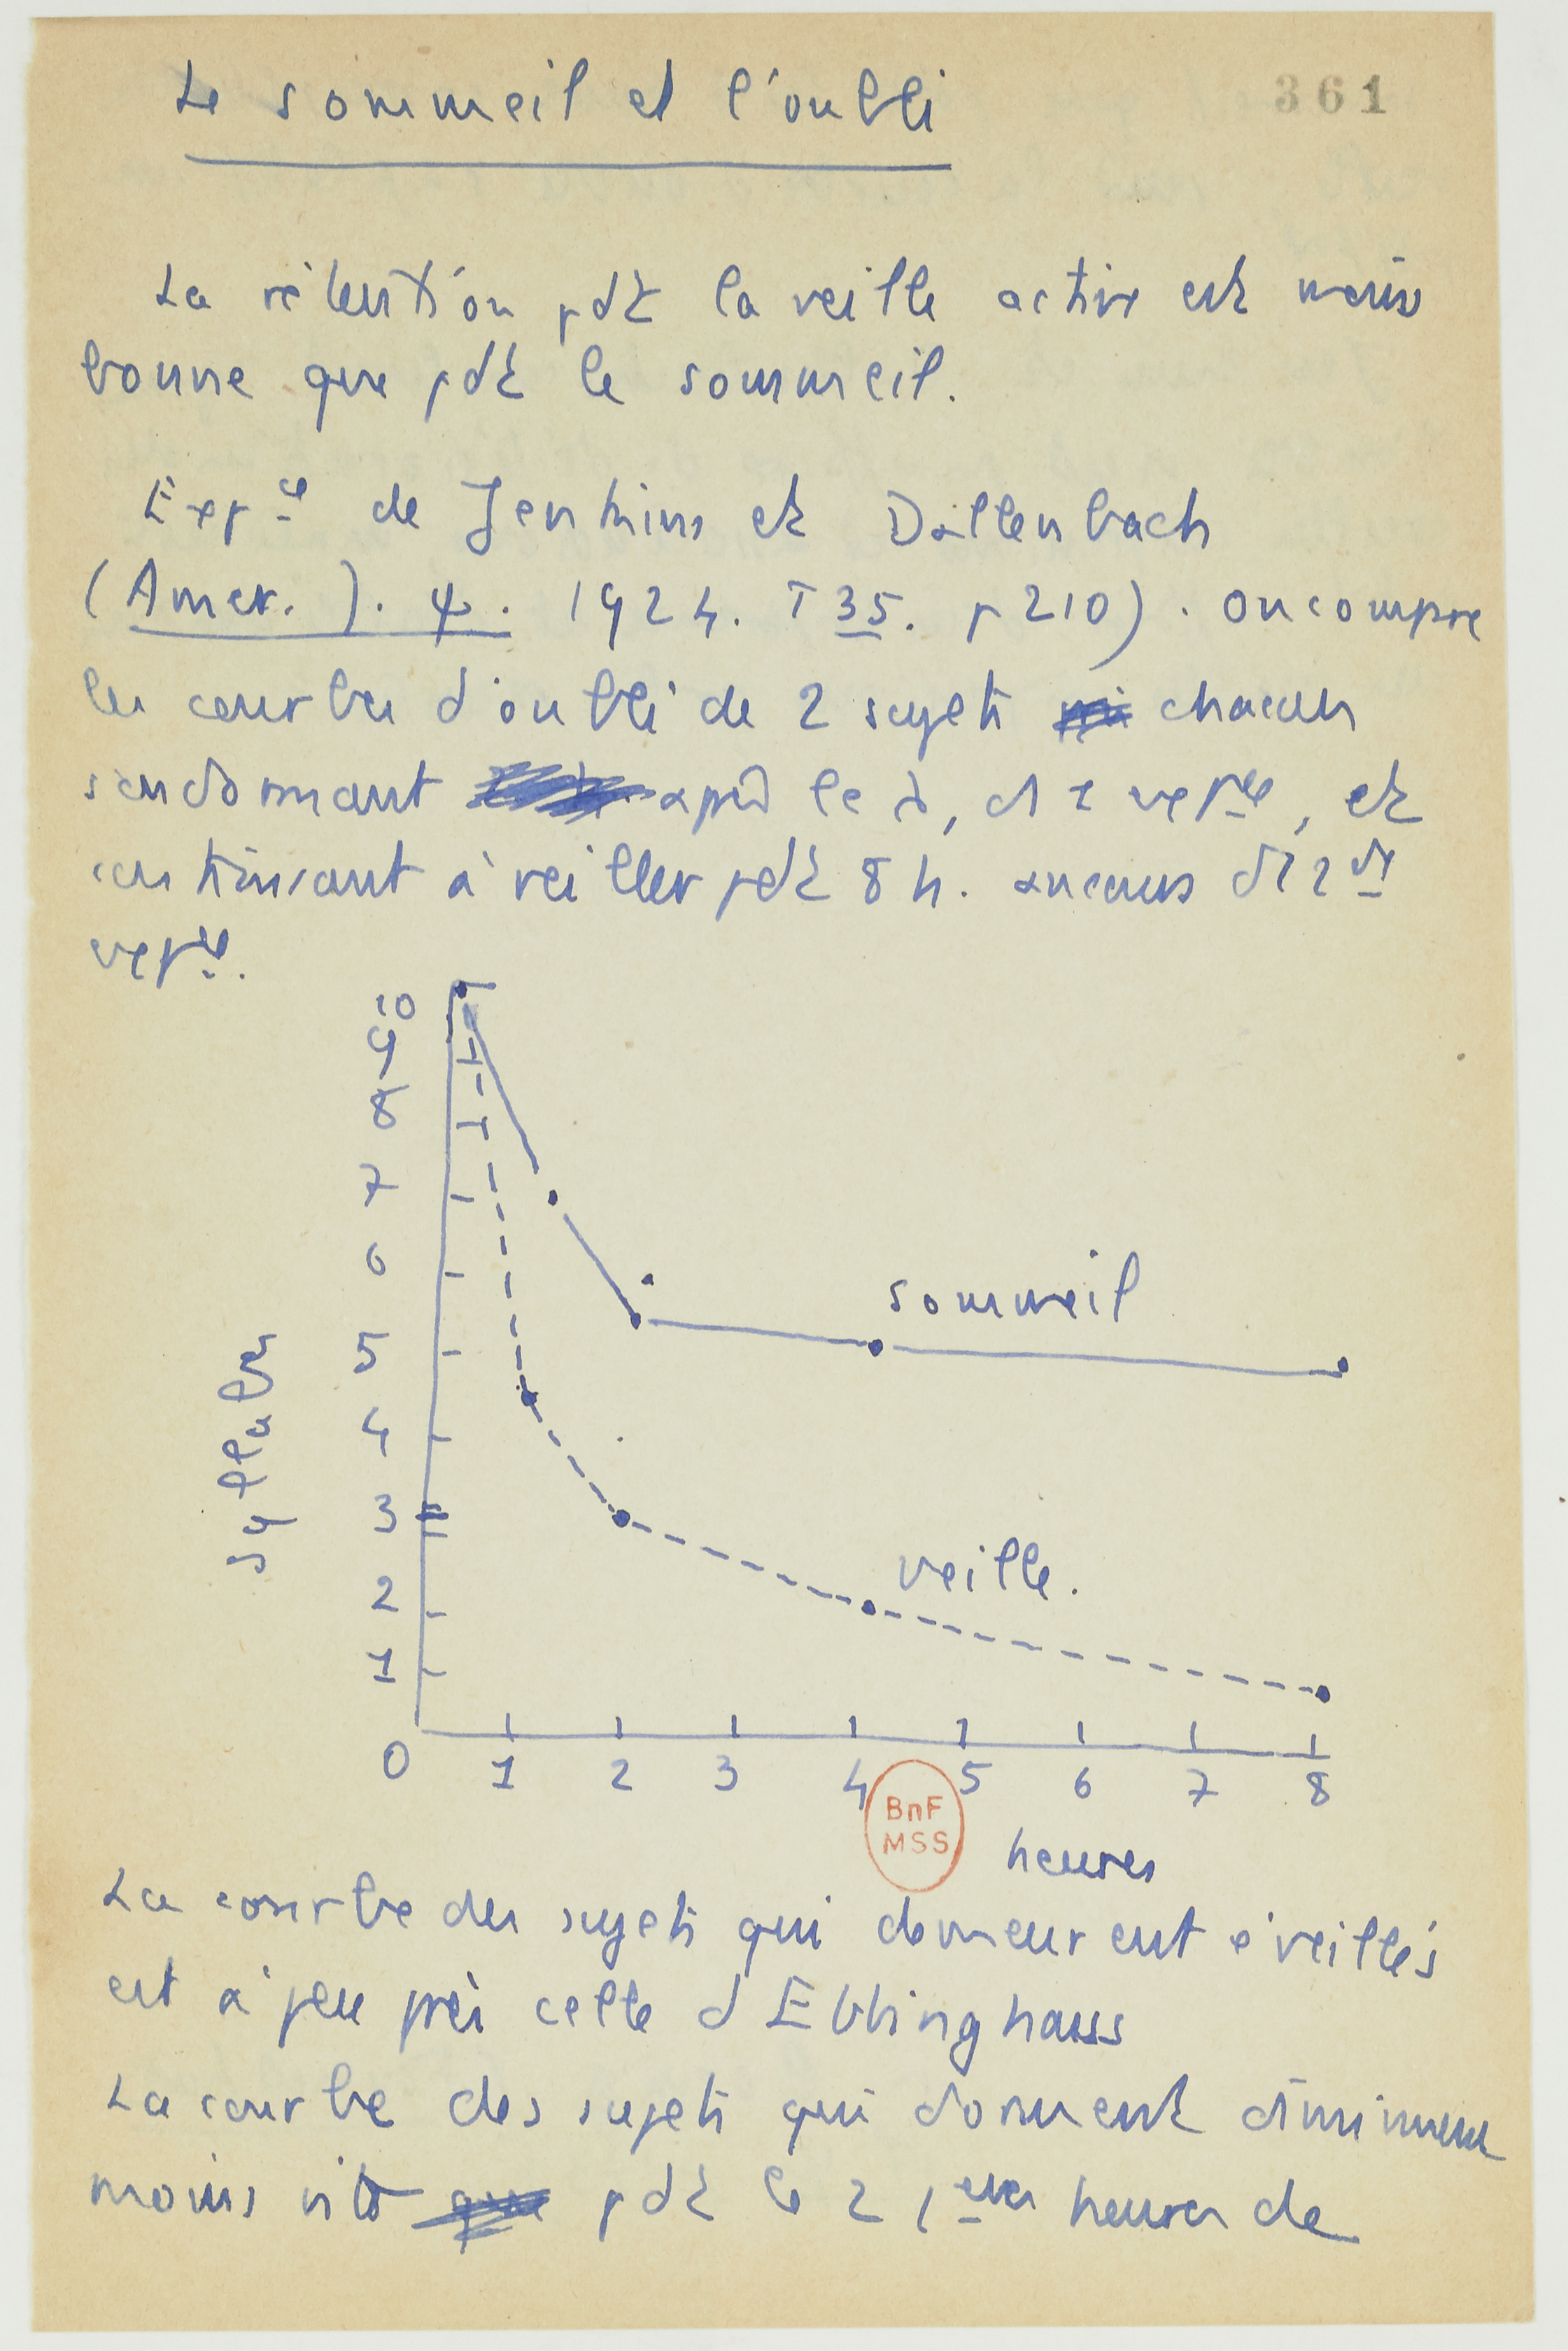 Le sommeil et l'oubli
361
La rétention pdt la veille active est moins
bonne que pdt le sommeil.
Expce de Jenkins et Dallenbach
(Amer. J. ψ. 1924. T 35. p 210). on compare
les courbes d'oubli de 2 sujets chacun
s'endormant après le , ds 1 expce, et
continuant à veiller pdt 8 h. au cours d'1 2de
expce.
10
9
8
7
6
5
4
3
2
1
0
syllabes
sommeil
veille.
1 2 3 4 5 6 7 8
BnF
MSS
heures
La courbe des sujets qui demeurent éveillés
est à peu près celle d'Ebbinghaus
La courbe des sujets qui dorment diminue
moins vite pdt les 2 1ères heures de